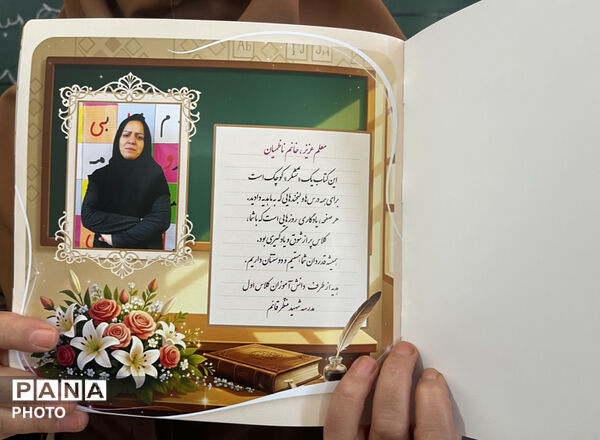 معلم عزیز، خانم ناظمیان
این کتاب یک «تشکر» کوچک است
برای همه درس‌ها و لبخندهایی که به ما هدیه دادید.
هر صفحه، یادگاری روزهایی است که با شما،
کلاس پر از شوق و یادگیری بود.
همیشه قدردان شما هستیم و دوستتان داریم.
هدیه از طرف دانش‌آموزان کلاس اول
مدرسه شهید مظفر قائم
Ab
بی
م
PANA
PHOTO